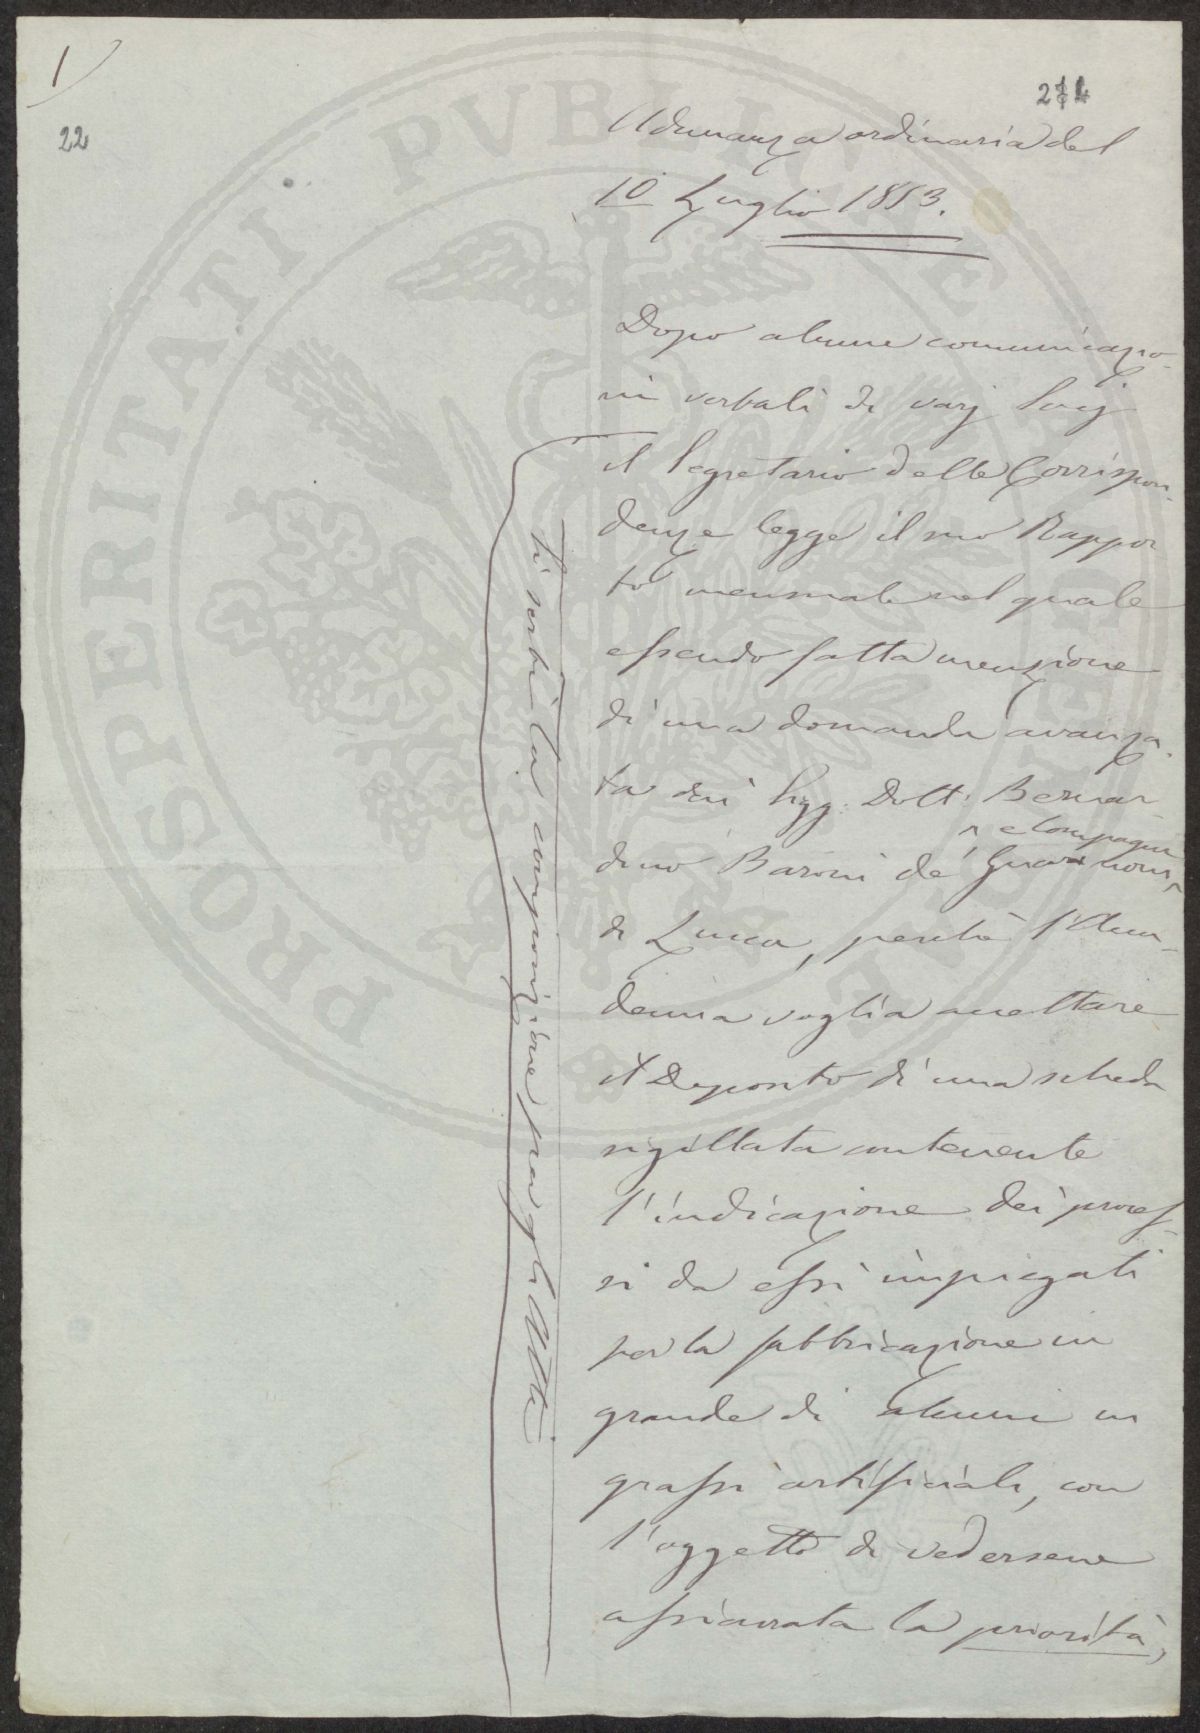 1)
22
Adunanza ordinaria del
10 Luglio 1853.
Dopo alcune comunicazio-
ni verbali di varj Socj
il Segretario delle Corrispon-
denze legge il suo Rappor
to mensuale nel quale
essendo fatta menzione
di una domanda avanza-
ta dai Sigg: Dott. Bernar
e Compagni
dino Baroni de
di Lucca, perchè l'Acca-
demia voglia accettare
il Deposito di una scheda
sigillata contenente
l'indicazione dei proces-
si da essi impiegati
per la fabbricazione in
grande di alcuni in
grassi artificiali, con
l'oggetto di vedersene
assicurata la priorità,
la composizione fra gli Atti
PROSPERITATI PUBLICAE